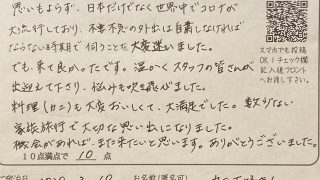 思いもよらず、日本だけでなく世界中でコロナが
大流行しており、不要不急の外出は自粛しなければ
ならない時期で伺うことを大変迷いました。
でも、来て良かったです。温かく スタッフの皆さんが
出迎えて下さり、悩みも吹き飛びました。
料理(カニ)も大変おいしくて、大満足でした。数少ない
家族旅行で大切な思い出になりました。
機会があれば、また来たいと思います。ありがとうございました。
10点満点で 10 点
スマホでも投稿
OK!チェック欄
記入後フロント
へお渡し下さい。
お名前(匿名可)